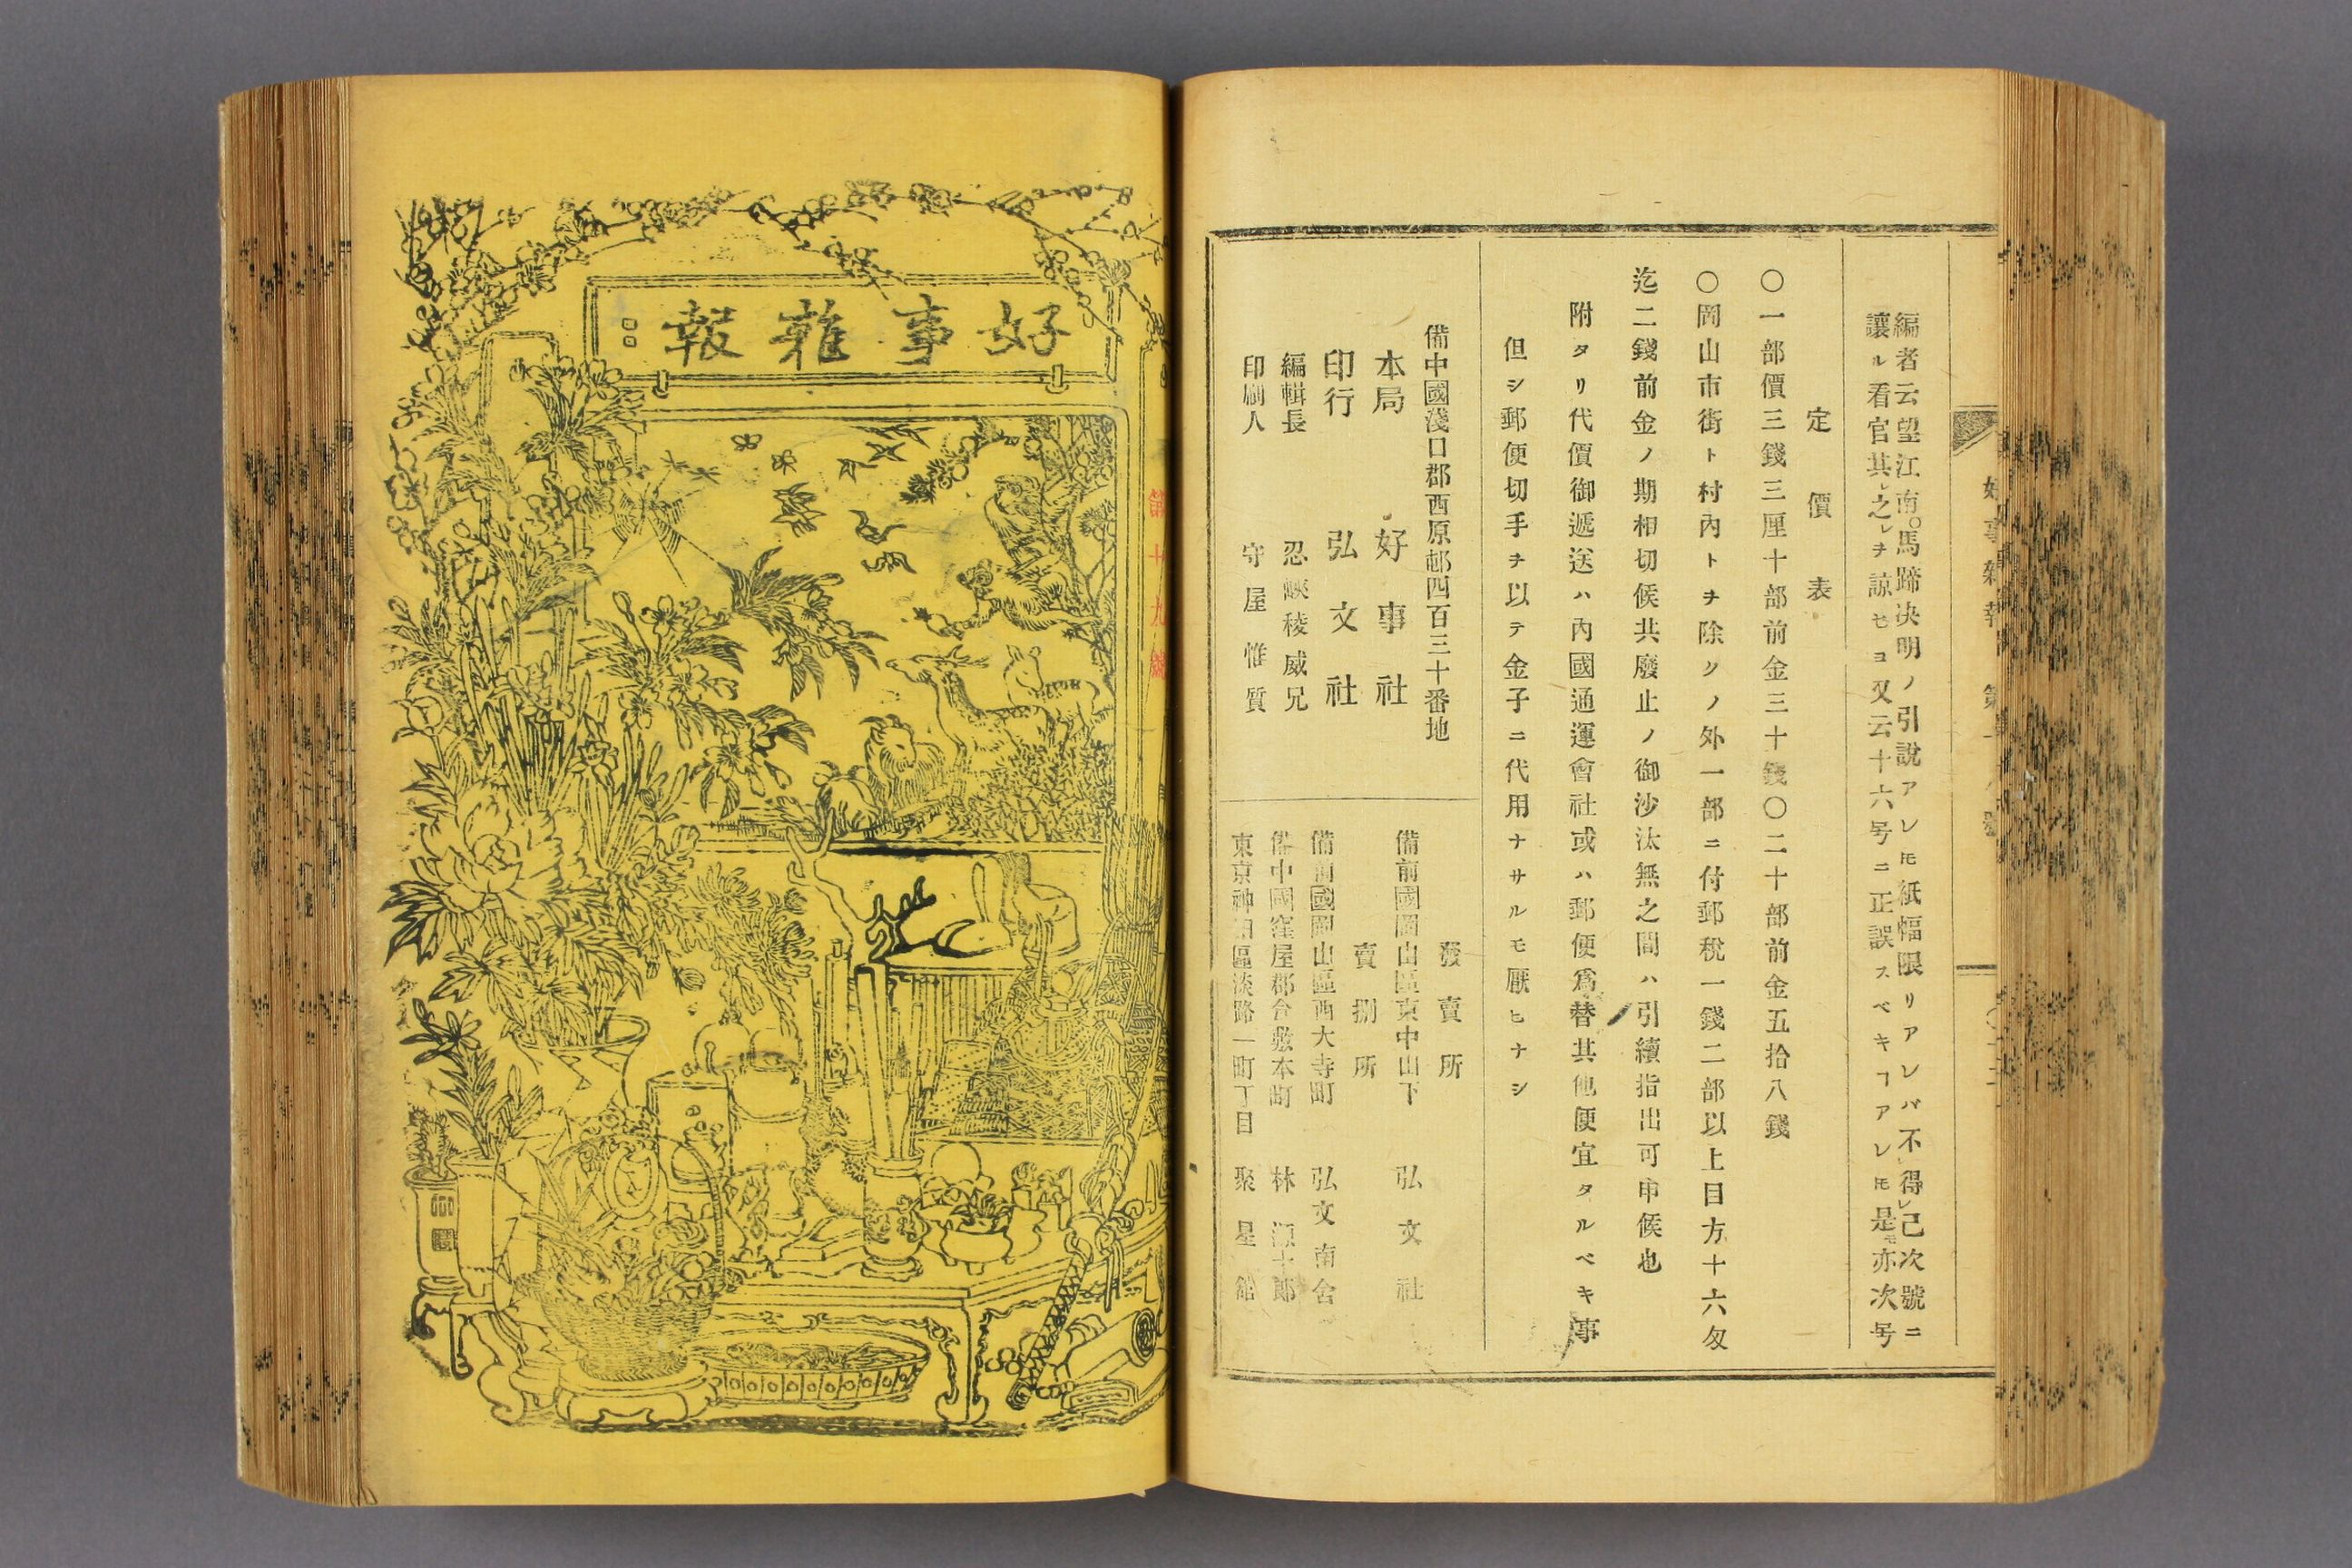 編者云望江南馬蹄决明ノ引說アレ𪜈紙幅限リアレバ不得己次號ニ
讓ル看官其之レヲ諒セヨ又云十六号ニ正誤スベキヿアレ𪜈是亦次号
定價表
〇一部價三錢三厘十部前金三十錢〇二十部前金五拾八錢
〇岡山市街ト村內トヲ除クノ外一部ニ付郵稅一錢二部以上目方十六匁
迄二錢前金ノ期相切候共廢止ノ御沙汰無之間ハ引續指出可申候也
附タリ代價御遞送ハ內國通運會社或ハ郵便爲替其他便宜タルベキ事
但シ郵便切手ヲ以テ金子ニ代用ナサルモ厭ヒナシ
備中國淺口郡西原邨四百三十番地
本局 好事社
印行 弘文社
編輯長 忍峽稜威兄
印刷人 守屋惟質
發賣所
備前國岡山區東中山下 弘文社
賣捌所
備前國岡山區西大寺町 弘文南舍
備中國窪屋郡倉敷本町 林源十郎
東京神田區淡路町一丁目 聚星館
好事雜報
第十九號